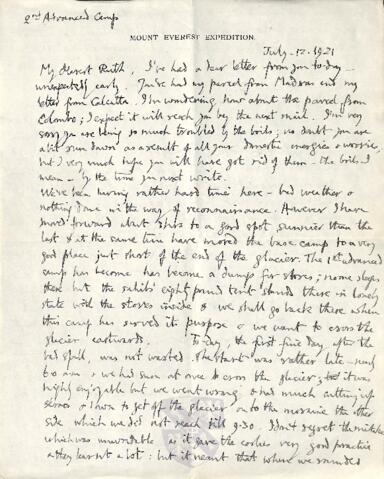 2nd Advanced Camp
MOUNT EVEREST EXPEDITION.
July 12. 1921
My dearest Ruth, I've had a dear letter from you to-day -
unexpectedly early. You've had my parcel from Madras and my
letter from Calcutta. I'm wondering now about the parcel from
Colombo; I expect it will reach you by the next mail. I'm very
sorry you are being so much troubled by the boils; no doubt you are
a bit run down as a result of all your domestic energies & worries,
but I very much hope you will have got rid of them - the boils I
mean - by the time you next write.
We've been having rather hard time here - bad weather &
nothing done in the way of reconnaisance. However I have
moved forward about to a good spot, sunnier than the
last & at the same time have moved the base camp to a very
good place just short of the end of the glacier. The 1st advanced
camp has become has become a dump for stores; no one sleeps
there but the sahibs' eight pound tent stands there in lonely
state with the stores inside & we shall go back there when
this camp has served it purpose & we want to cross the
glacier eastwards. To-day, the first fine day after the
bad spell, was not wasted. The start was rather late - nearly
6 a.m & we had sun at once to cross the glacier; it was
highly enjoyable but we went wrong & had much cutting up
seracs & down to get off the glacier on to the moraine the other
side which we did not reach till 9-30. I don't regret the mistake
which was unavoidable as it gave the coolies very good practice
& they learnt a lot: but it meant that when we rounded